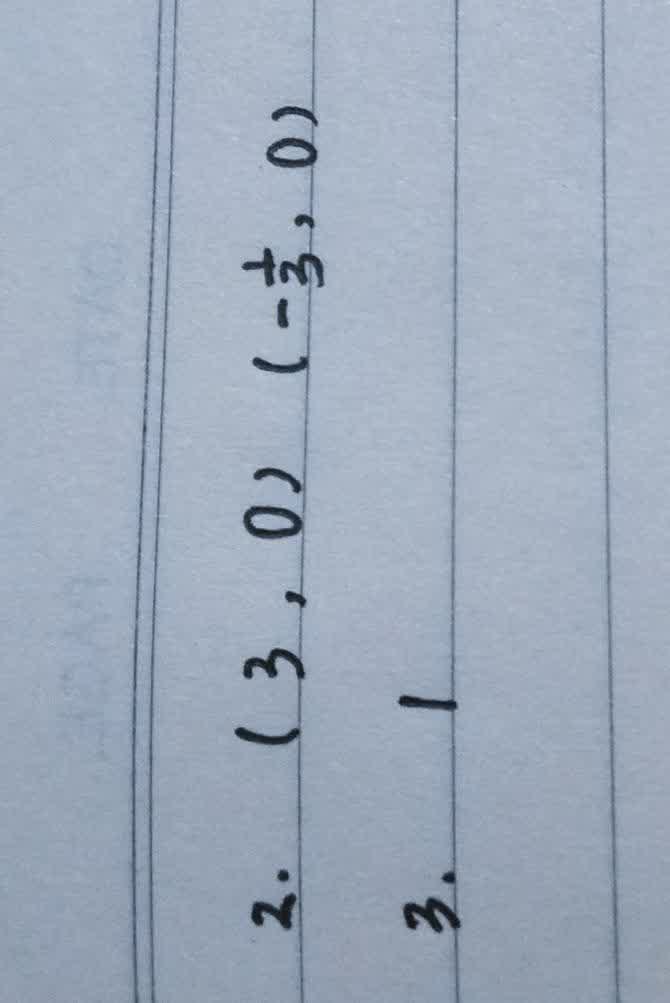 2. (3, 0) (-1/3, 0)
3. 1